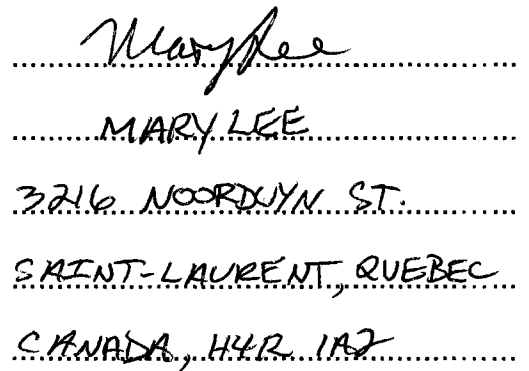 Mary Lee
MARY LEE
3216 NOORDUYN ST.
SAINT-LAURENT, QUEBEC
CANADA, H4R 1A2